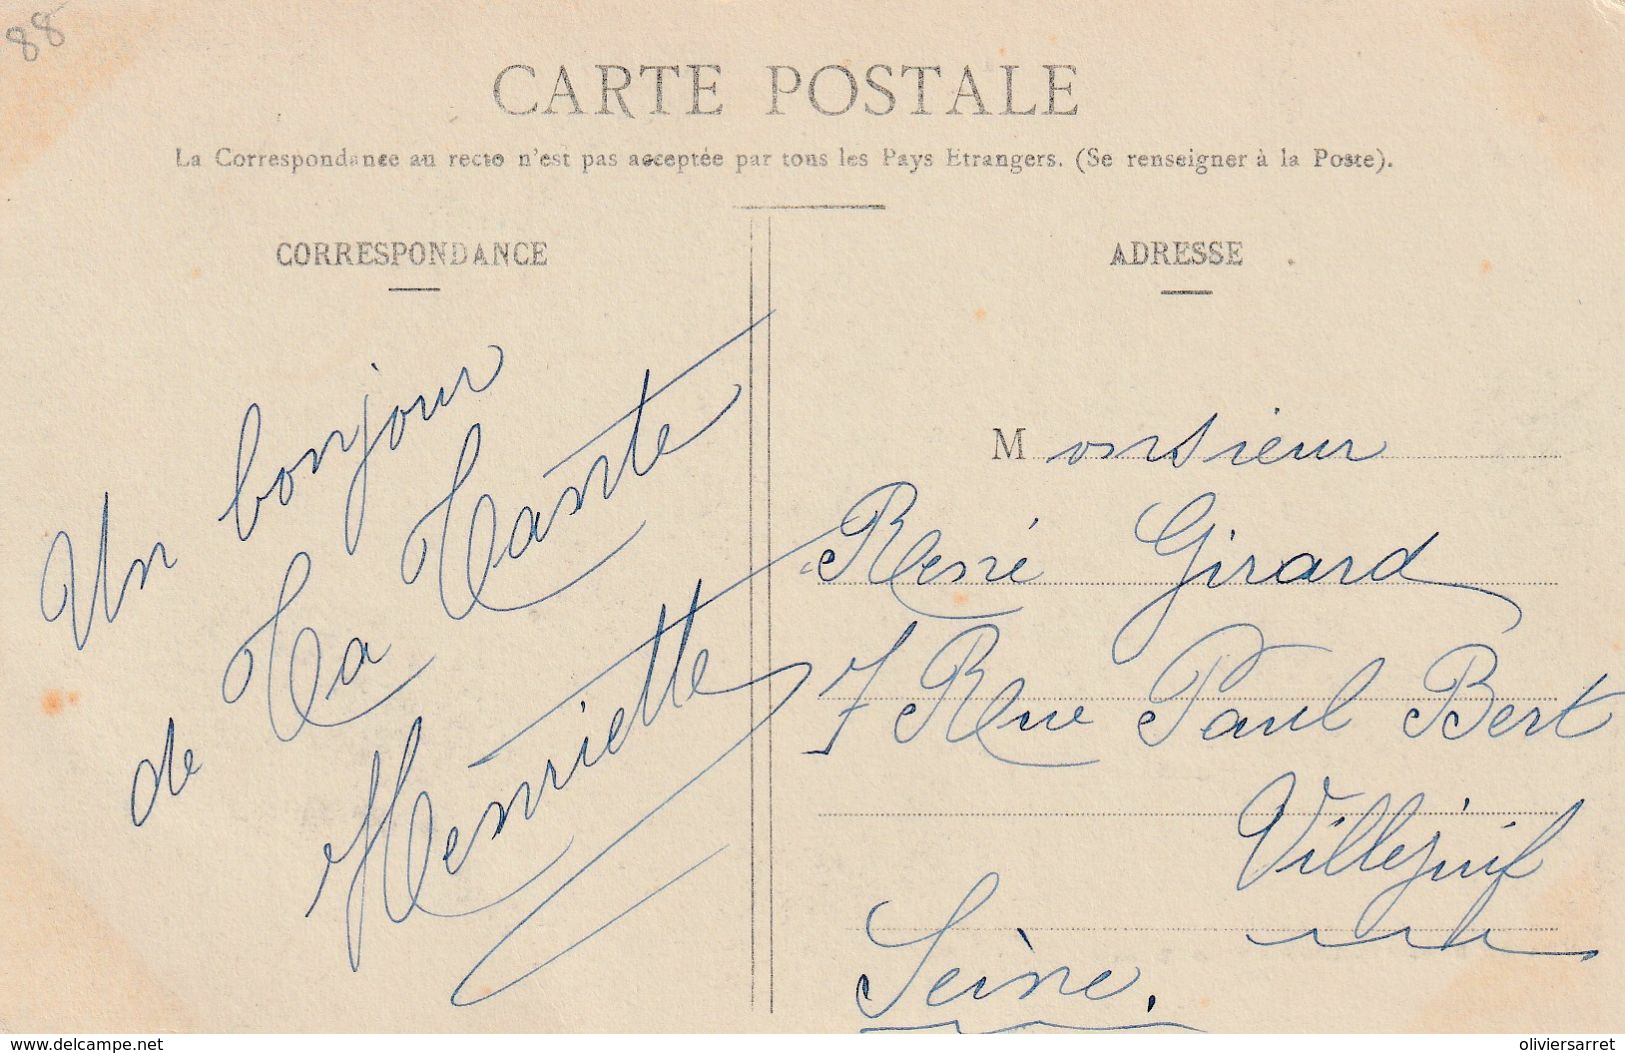 88
CARTE POSTALE
La Correspondance au recto n'est pas acceptée par tous les Pays Etrangers. (Se renseigner à la Poste).
CORRESPONDANCE
Un bonjour
de Ta Tante
Henriette
ADRESSE
Monsieur
René Girard
7 Rue Paul Bert
Villejuif
Seine.
www.delcampe.net
oliviersarret